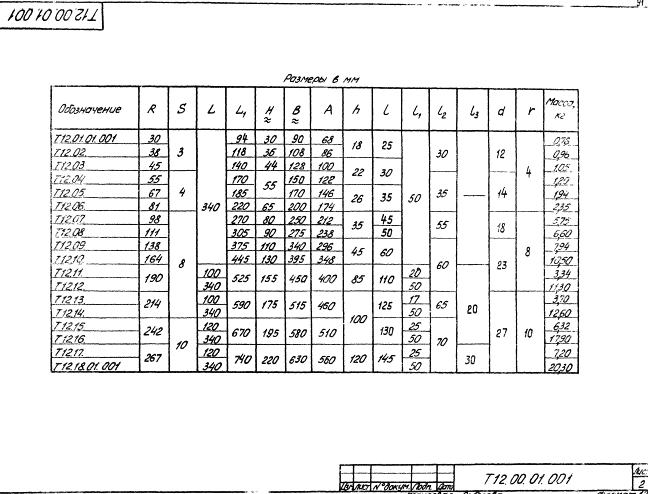 Т12.00.01.001
91
Размеры в мм
Обозначение R S L L₁ H ≈ B ≈ A h l l₁ l₂ l₃ d r Масса, кг
Т12.01.01.001 30 3 340 94 30 90 68 18 25 50 30 — 12 4 0,76
Т12.02. 38 118 36 108 86 0,96
Т12.03. 45 140 44 128 100 22 30 1,05
Т12.04. 55 4 170 55 150 122 35 14 1,20
Т12.05. 67 185 170 146 26 35 1,94
Т12.06. 81 220 65 200 174 2,35
Т12.07. 98 8 270 80 250 212 35 45 55 18 8 5,75
Т12.08. 111 305 90 275 238 50 6,60
Т12.09. 138 375 110 340 296 45 60 60 7,94
Т12.10. 164 445 130 395 348 23 10,50
Т12.11. 190 100 525 155 450 400 85 110 20 20 3,34
Т12.12. 340 50 11,30
Т12.13. 214 100 590 175 515 460 100 125 17 65 27 10 3,70
Т12.14. 340 50 12,60
Т12.15 242 10 120 670 195 580 510 130 25 70 6,32
Т12.16. 340 50 17,90
Т12.17. 267 120 740 220 630 560 120 145 25 30 7,20
Т12.18.01.001 340 50 20,30
Изм. Лист № докум. Подп. Дата
Т12.00.01.001
Лист
2